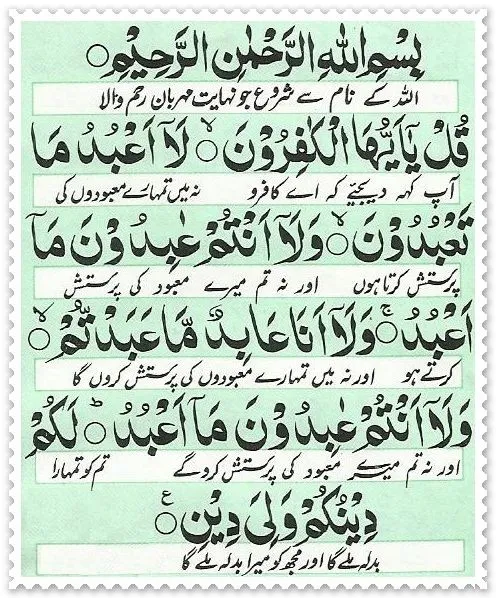 بِسْمِ اللهِ الرَّحْمٰنِ الرَّحِيْمِ ○
اللہ کے نام سے شروع جو نہایت مہربان رحم والا
قُلْ يٰۤاَيُّهَا الْكٰفِرُوْنَ ○ۙ لَاۤ اَعْبُدُ مَا
آپ کہہ دیجئیے کہ اے کافرو نہ میں تمہارے معبودوں کی
تَعْبُدُوْنَ ○ۙ وَلَاۤ اَنْتُمْ عٰبِدُوْنَ مَاۤ
پرستش کرتا ہوں اور نہ تم میرے معبود کی پرستش
اَعْبُدُ ○ۚ وَلَاۤ اَنَا عَابِدٌ مَّا عَبَدْتُّمْ ○ۙ
کرتے ہو اور نہ میں تمہارے معبودوں کی پرستش کروں گا
وَلَاۤ اَنْتُمْ عٰبِدُوْنَ مَاۤ اَعْبُدُ ○ؕ لَكُمْ
اور نہ تم میرے معبود کی پرستش کروگے تم کو تمہارا
دِيْنُكُمْ وَلِىَ دِيْنِ ○ع
بدلہ ملے گا اور مجھ کو میرا بدلہ ملے گا